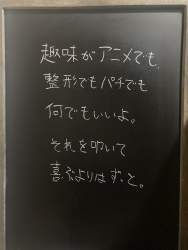 趣味がアニメでも、
整形でもパチでも
何でもいいよ。
それを叩いて
喜ぶよりはずっと。